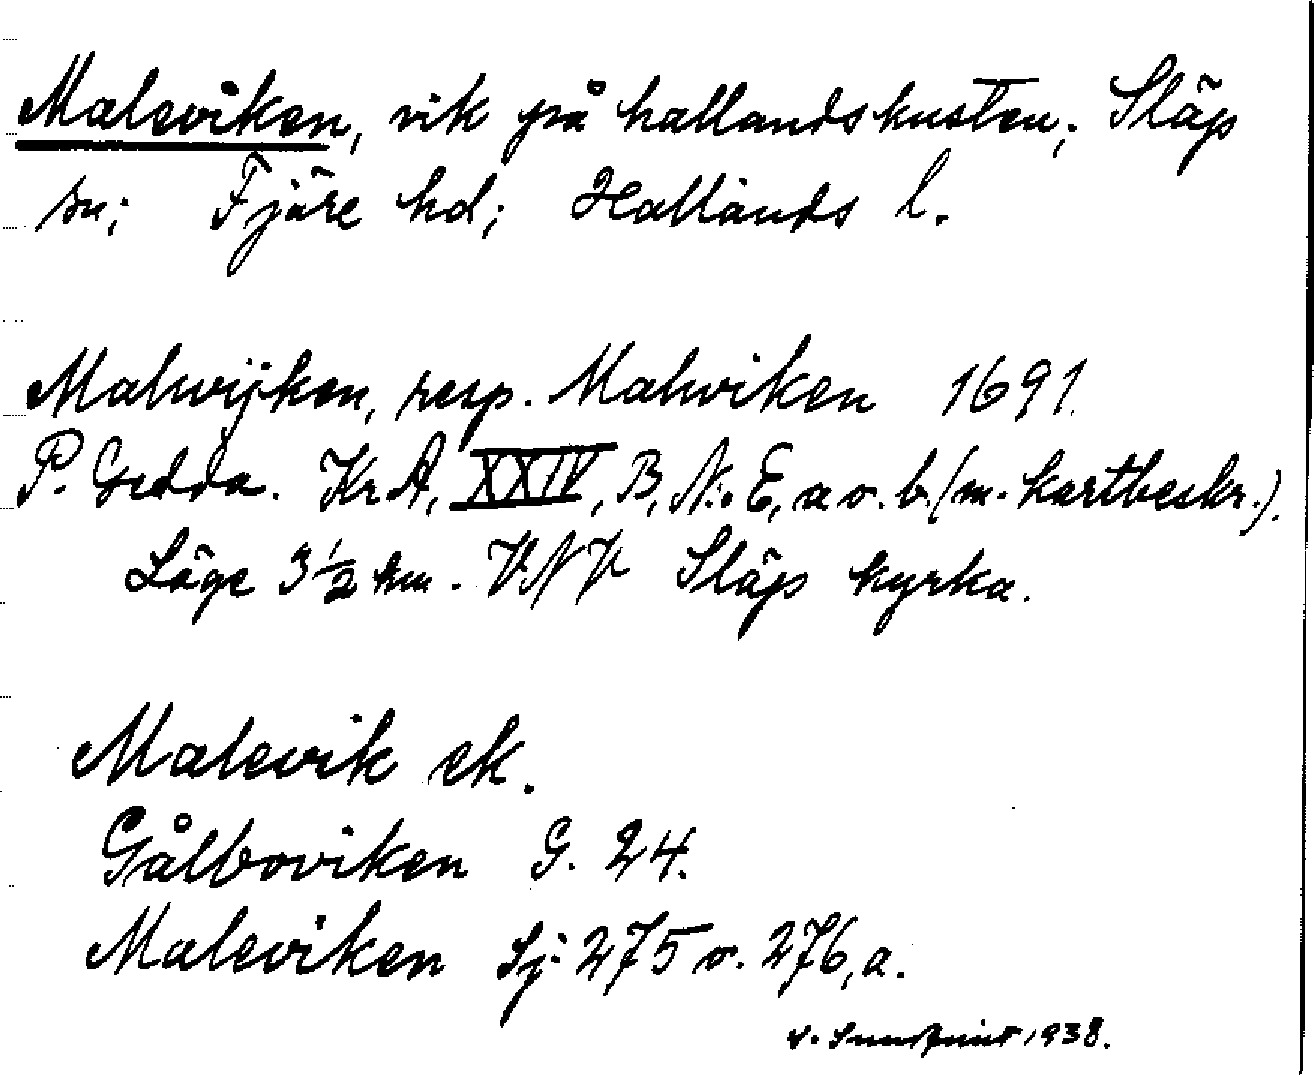 Maleviken, vik på hallandskusten; Släp
sn; Fjäre hd; Hallands l.
Malwijken, resp. Malwiken 1691.
P. Gedda. Kr A, XXIV, B, N:o E, a o. b (m. kartbeskr.).
Läge 3 1/2 km. VNV Släp kyrka.
Malevik ek.
Gålboviken G. 24.
Maleviken Sj: 275 o. 276, a.
1938.